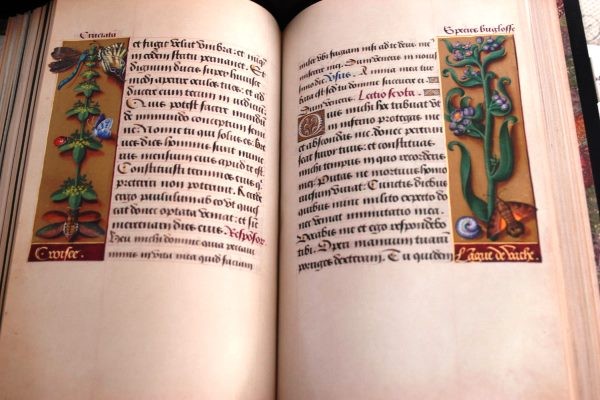 Cruciata
et fugit velut umbra: et nūqͣ
in eodem statu permanet. Et
dignum ducis super huiusce
modi aperire oculos tuos: et ad
ducere eum tecum in iudicium
Quis potest facere mundū
de immundo conceptum semi
ne. Nonne tu qui solus es. bre
ves dies hominis sunt nume
rus mensium eius apud te est.
Constituisti terminos eius: q̄
preteriri non poterunt. Recede
ergo paululum ab eo ut quies
cat donec optata veniat: et sic
mercenarii dies eius. Respōsor.
Heu michi domine quia peccavi
nimis in vita mea quid faciam
Croisee.
Species buglosse
miser ubi fugiam nisi ad te deus me
us. Miserere mei. Dum veneris in novis
simo die. Versus. Anima mea tur
bata est sed tu domine succurre
Dum veneris. Lectio sexta.
Quis michi hoc tribuat ut
in inferno protegas me
et abscondas me: donec pertran
seat furor tuus: et constituas
michi tempus in quo recorderis
mei. Putas ne mortuus homo
rursum vivat. Cunctis diebus
quibus nunc milito expecto do
nec veniat immutatio mea.
Vocabis me et ego respondebo
tibi. Operi manuum tuarū
porriges dexteram. Tu quidem
Lāgue de vache.